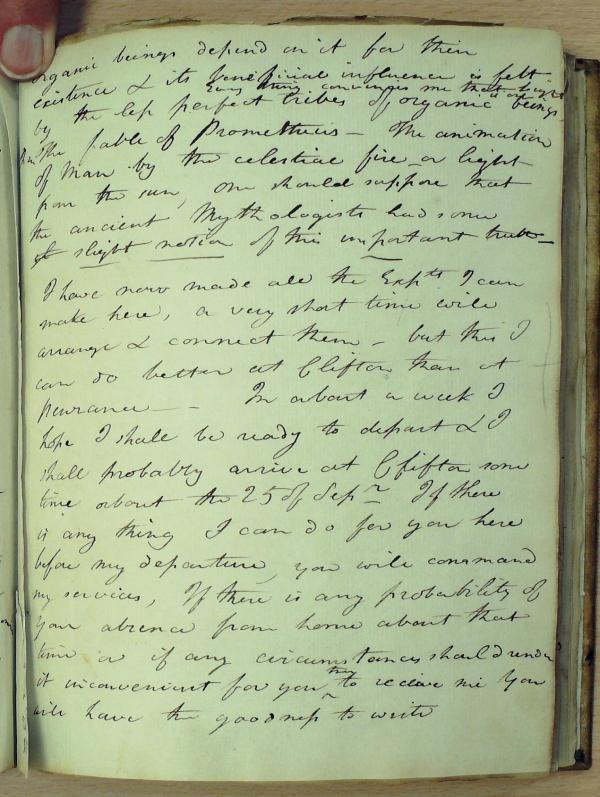 organic beings depend on it for their
existence & its beneficial influence is felt
Every thing convinces me that
by the less perfect tribes of organic beings
The fable of Prometheus – The animation
of Man by the celestial fire or light
from the sun, one should suppose that
the ancient Mythologists had some
slight notion of this important truth –
I have now made all the Expts I can
make here, a very short time will
arrange & connect them – but this I
can do better at Clifton than at
penzance – – In about a week I
hope I shall be ready to depart & I
shall probably arrive at Clifton some
time about the 25 of Sepr If there
is any thing I can do for you here
before my departure, you will command
my services, If there is any probability of
your absence from home about that
time or if any circumstances should render
it inconvenient for you then to receive me You
will have the goodness to write